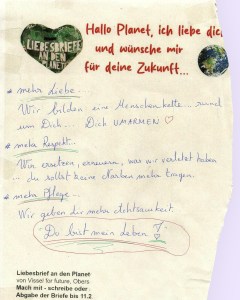 LIEBESBRIEFE
AN DEN
PLANET
Hallo Planet, ich liebe dich
und wünsche mir
für deine Zukunft...
* mehr Liebe.
Wir bilden eine Menschenkette... rund
um Dich... Dich UMARMEN ♡
* mehr Respekt.
Wir ersetzen, erneuern, was wir verletzt haben
.. du sollst keine Narben mehr tragen.
* mehr Pflege...
Wir geben dir mehr Achtsamkeit.
"Du bist mein Leben"
Liebesbrief an den Planet
von Vissel for future, Obers
Mach mit - schreibe oder
Abgabe der Briefe bis 11.2